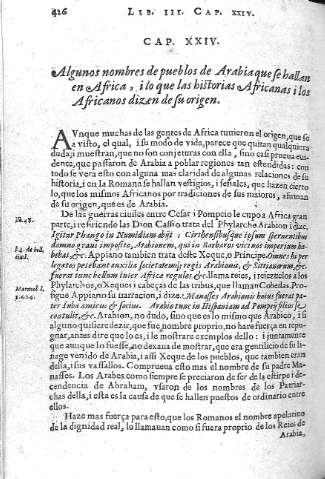 426 LIB. III. CAP. XXIV.
CAP. XXIV.
Algunos nombres de pueblos de Arabia que se hallan
en Africa, i lo que las historias Africanas i los
Africanos dizen de su origen.
AVnque muchas de las gentes de Africa tuuieron el origen, que se
a visto, el qual, i su modo de vida, parece que quitan qualquiera
duda, i muestran, que no son conjeturas con ella, sino casi prueua euidente,
dente, que passaron de Arabia a poblar regiones tan estendidas: con
todo se vera esto con alguna mas claridad de algunas relaciones de su
historia, i en la Romana se hallan vestigios, i señales, que hazen cierto
lo, que los mismos Africanos por tradiciones de sus mayores, afirman
de su origen, que es de Arabia.
De las guerras ciuiles entre Cesar i Pompeio le cupo a Africa gran
parte, i refiriendo las Dion Cassio trata del Phylarcho Arabion i dize,
Igitur Phango in Numidiam abijt: Cirthensibusque ipsum spernentibus
damno graui imposito, Arabionem, qui in Barbaros vicinos imperium habebas
&c. Appiano tambien trata deste Xeque, o Principe. Omnes hi per
legatos petebant auxilia societatemque regis Arabionis, & Sittianorum, &
Phylarchos, o Xeques i cabeças de las tribus, que llaman Cobedas. Prosigue
Appiano su narracion, i dize. Manasses Arabionis huius fuerat pater
Iuba amicus & socius. Arabio tunc in Hispaniam ad Pompeij filios se
contulit, &c. Arabion, no dudo, sino que es lo mismo que Arabico, i si
alguno quisiere dezir, que fue nombre proprio, no hare fuerça en repugnar,
antes dire que lo es, i le mostrare exemplos dello: i juntamente
que aunque lo fuesse, no dexaua de mostrar, que era gentilicio de su linage
venido de Arabia, i assi Xeque de los pueblos, que tambien eran
della, i sus vassallos. Comprueua esto mas el nombre de su padre Manasses.
Los Arabes como siempre se preciaron de ser de la estirpe i decendencia
de Abraham, vsaron de los nombres de los Patriarchas
della, i esta es la causa de que se hallen puestos de ordinario entre
ellos.
Haze mas fuerça para esto, que los Romanos el nombre apelatiuo
de la dignidad real, lo llamauan como si fuera proprio de los Reies de
Arabia,